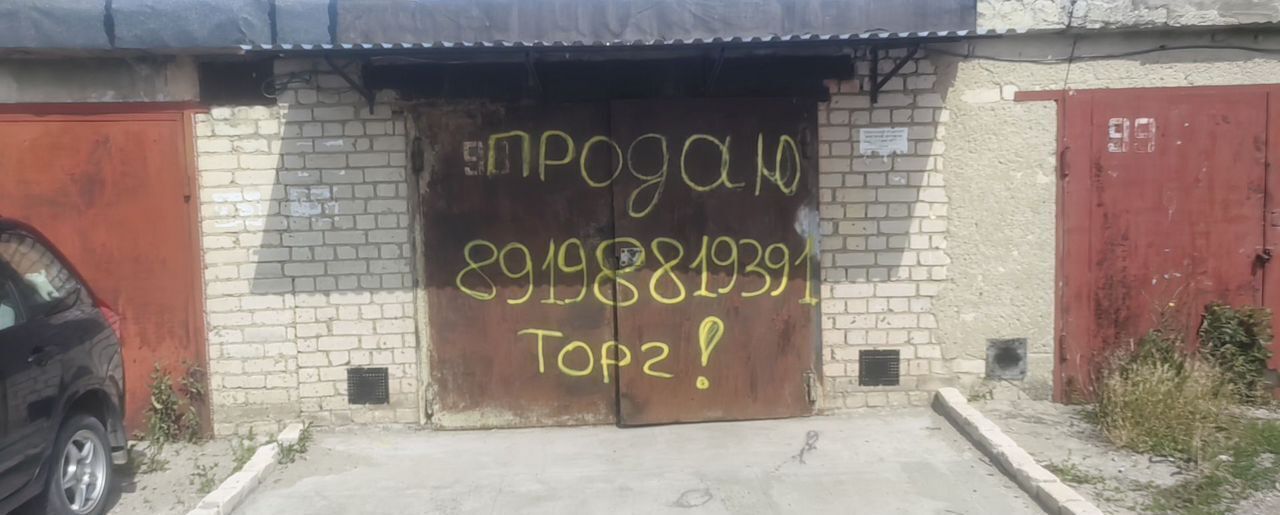 продаю
89198819391
Торг!
99